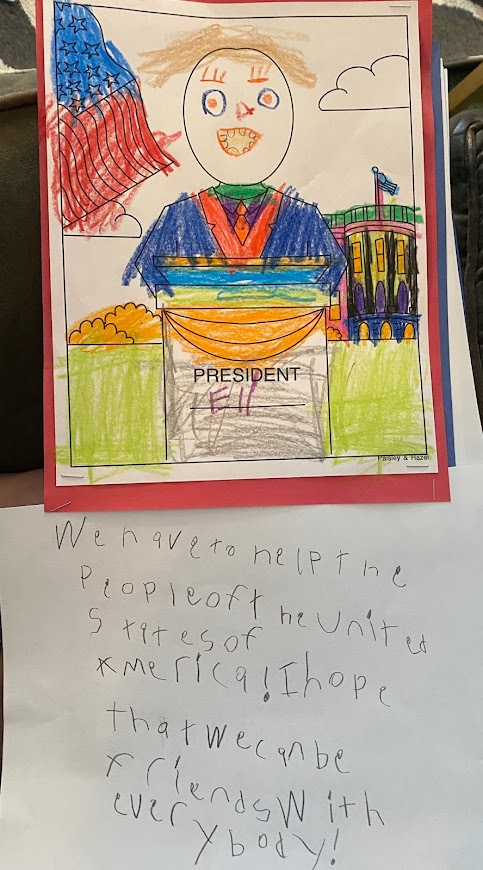 PRESIDENT
Eli
Paisley & Hazel
We have to help the
People of the United
States of
America! I hope
that we can be
friends With
every body!